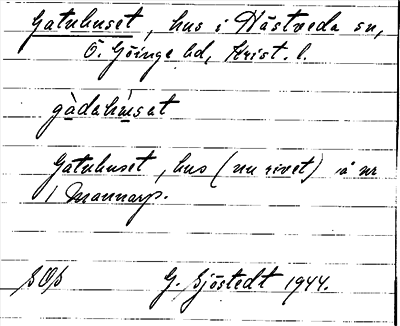 Gatuhuset, hus i Hästveda sn,
Ö. Göinge hd, Krist. l.
gàdahùsat
Gatuhuset, hus (nu rivet) å nr
1 Mannarp.
G. Sjöstedt 1944.